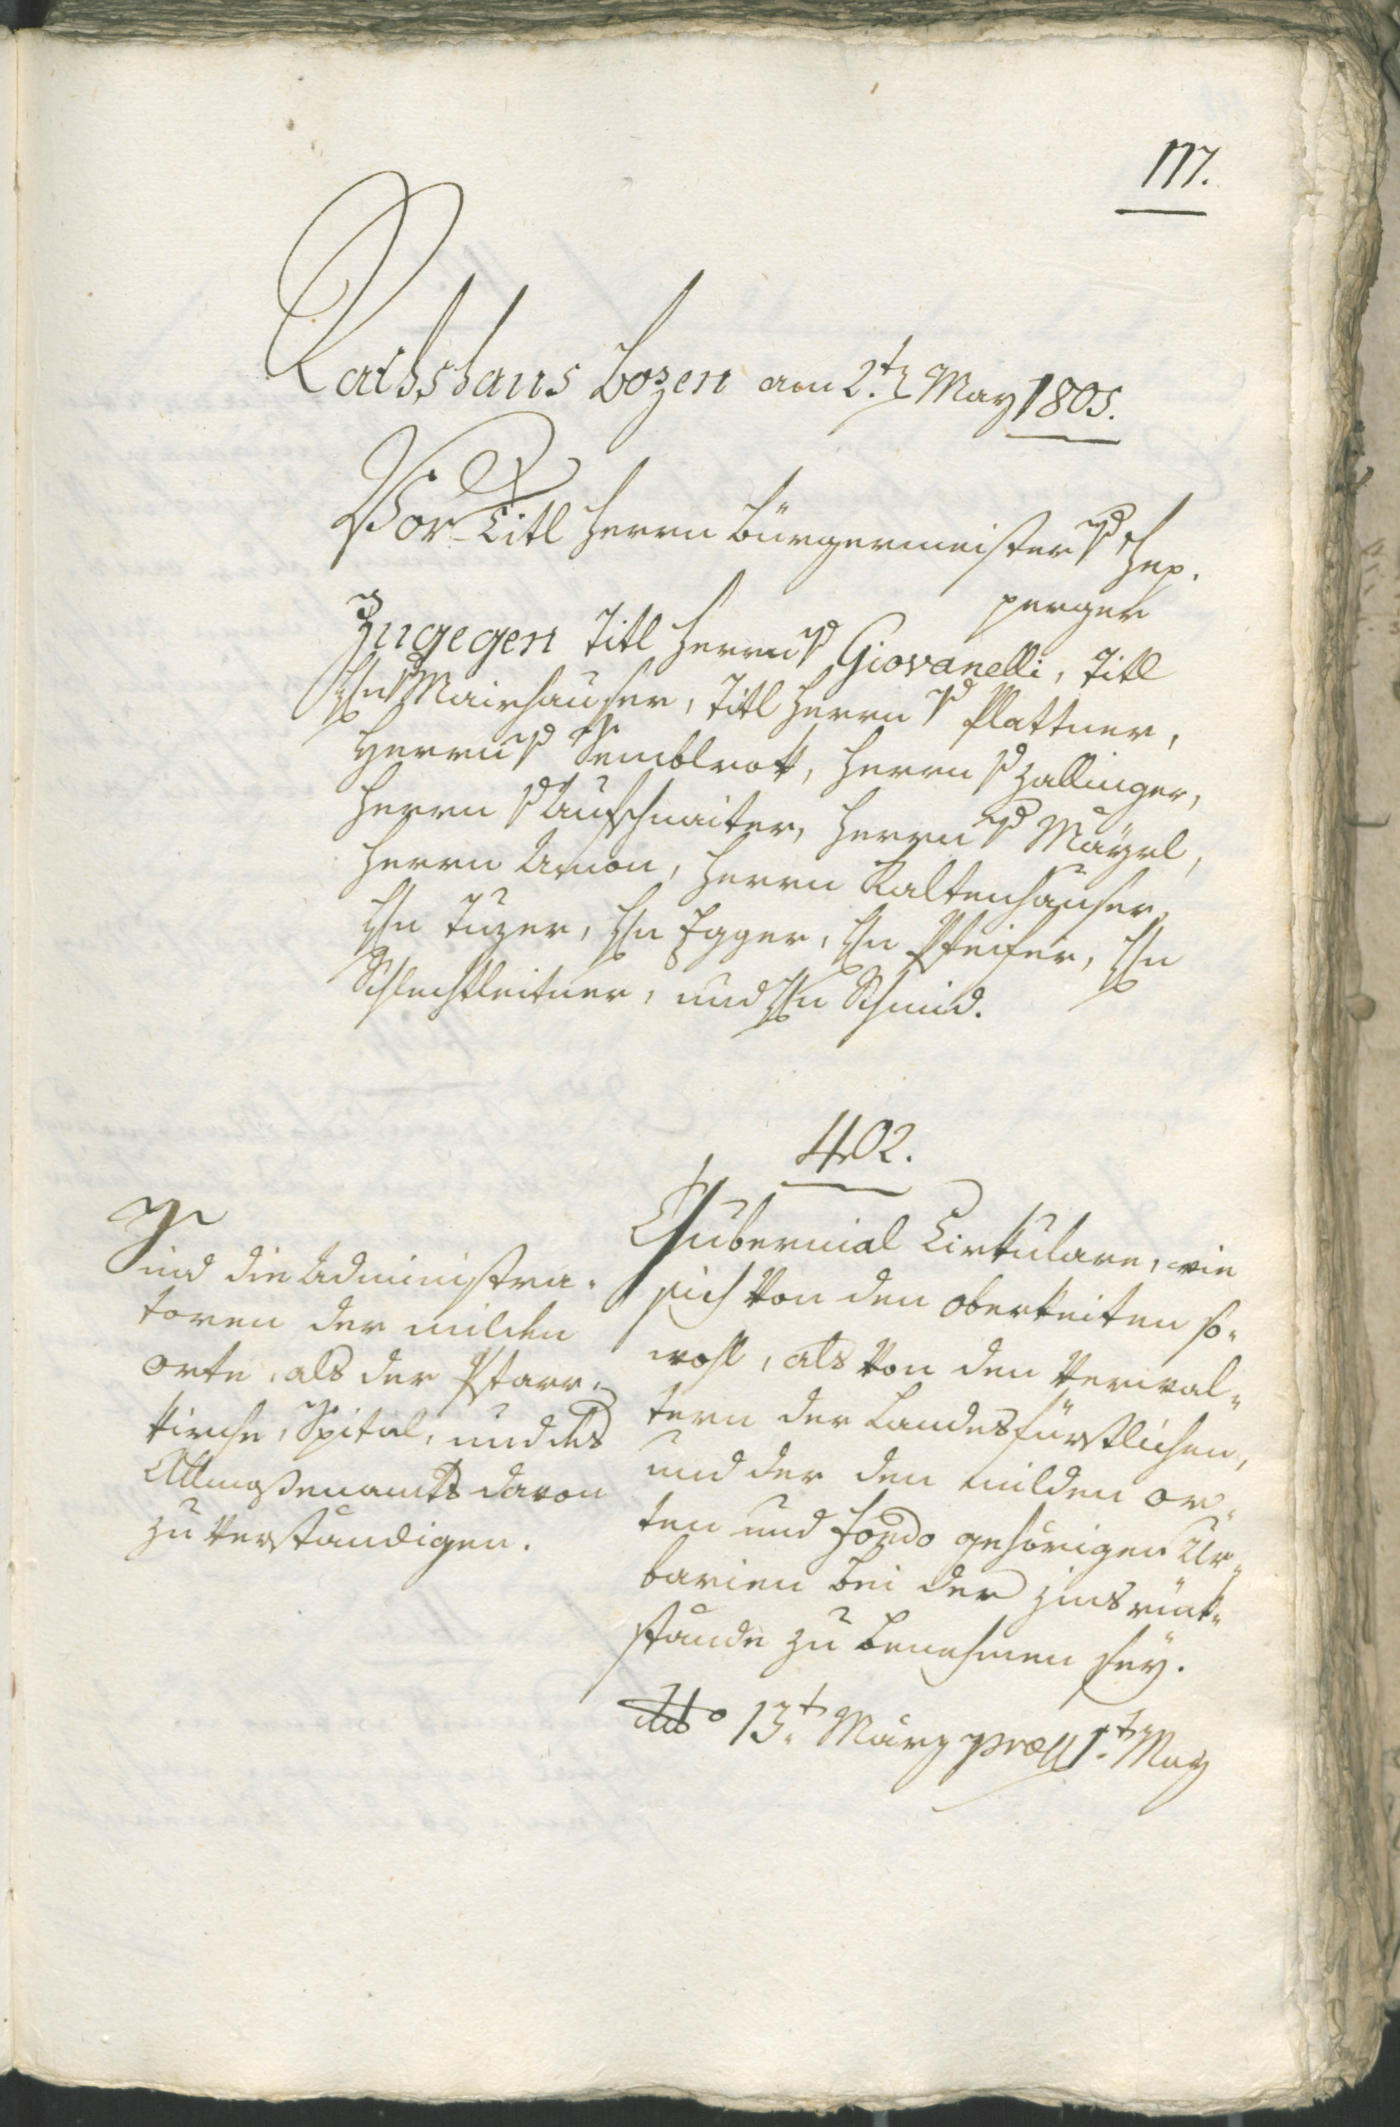 177.
Rathshaus Bozen am 2.t May 1805.
Vor Titl Herrn Bürgermeister v Hep-
perger
Zugegen Titl Herrn v Giovanelli, Titl
Hn v Mairhauser, Titl Herrn v Plattner,
Herrn v Semblrok, Herrn v Zallinger,
Herrn v Aufschnaiter, Herrn v Mayrl,
Herrn Amon, Herrn Kaltenhauser,
Hn Tuzer, Hn Egger, Hn Pfeifer, Hn
Schlechtleitner, und Hn Schmid.
402.
Gubernial Cirkulare, wie
sich von den Oberkeiten so-
wohl, als von den Verwal-
tern der Landesfürstlichen,
und der den milden Or-
ten und Fondo gehörigen Ur-
barien bei der Zinsrück-
stände zu benehmen sey.
ddo 13.t März præs 1.t May
Sind die Administra-
toren der milden
Orte, als der Pfarr-
kirche, Spital, und des
Allmoßenamts davon
zu verständigen.